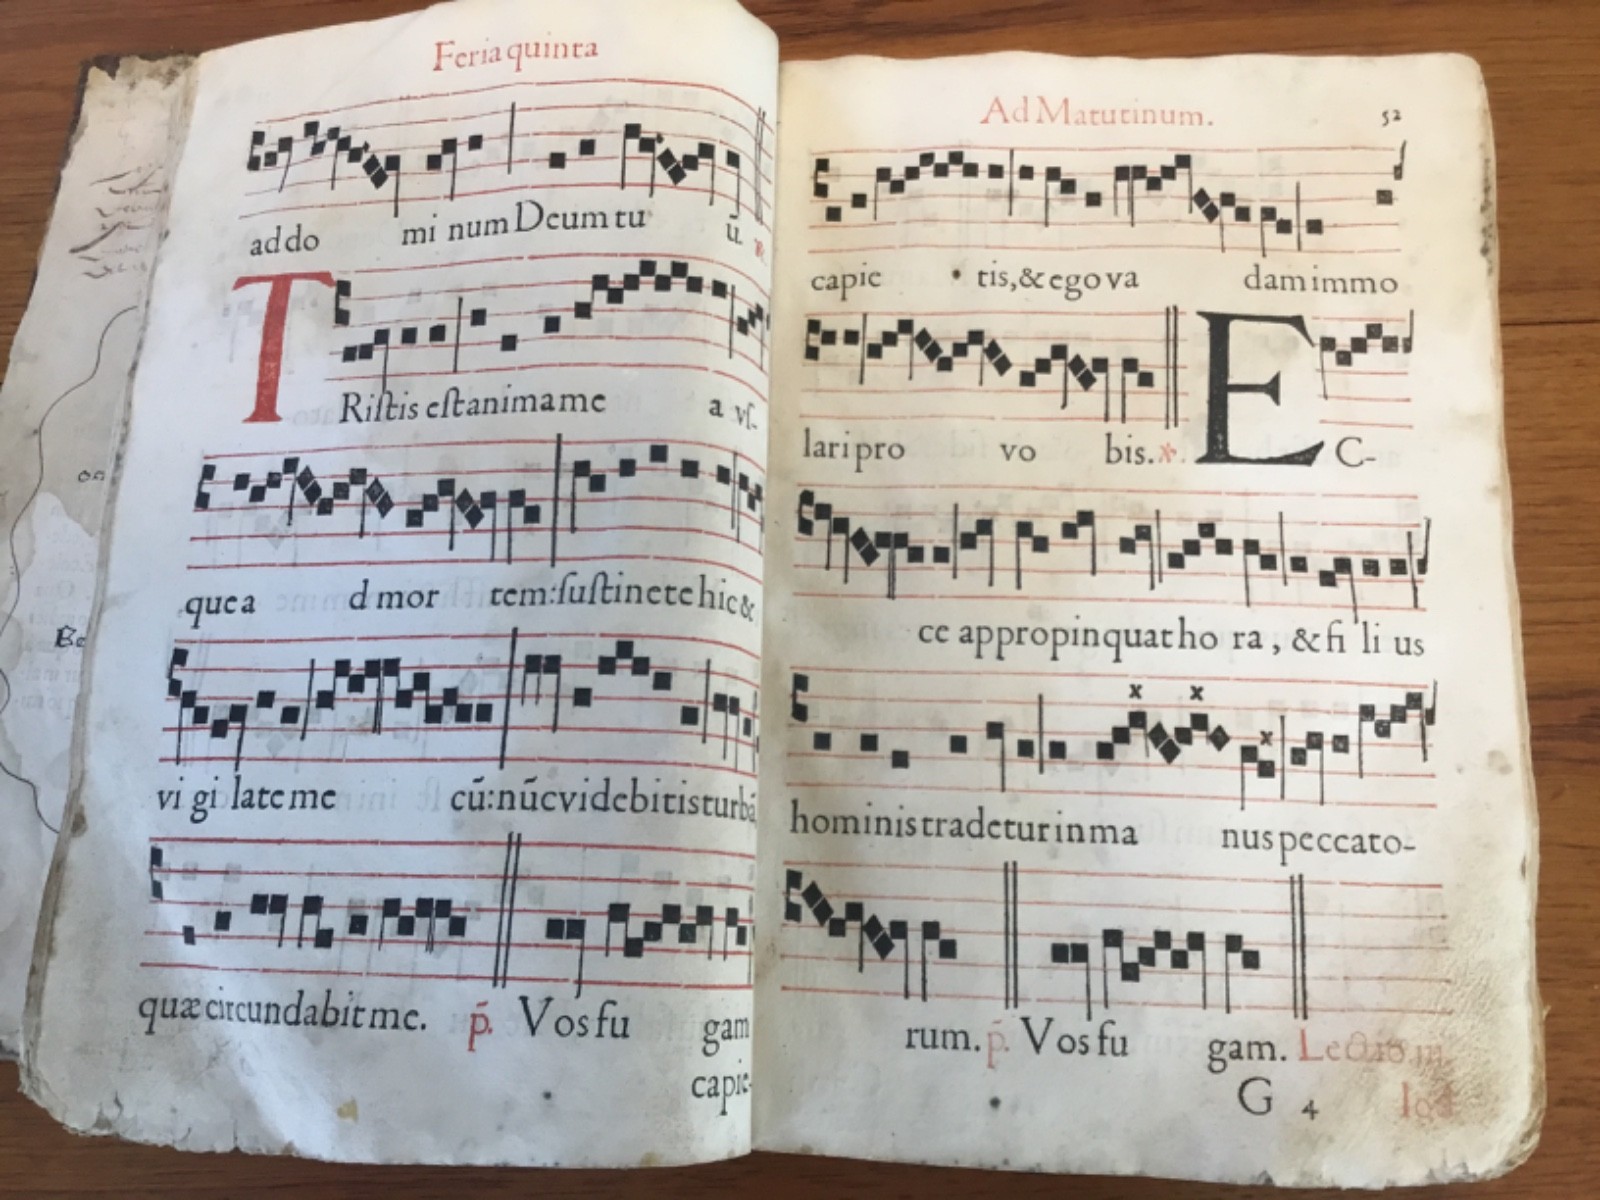 Feria quinta
ad do mi num Deum tu ū. ℟.
TRiſtis eſt anima me a vſ-
que a d mor tem: ſuſtinete hic &
vi gi late me cū: nūc videbitis turbā,
quæ circundabit me. p̄. Vos fu gam
capie-
Ad Matutinum. 52
capie tis, & ego va dam immo
lari pro vo bis. ℣. EC-
ce appropinquat ho ra, & fi li us
hominis tradetur in ma nus peccato-
rum. p̄. Vos fu gam. Lectio iij.
G 4